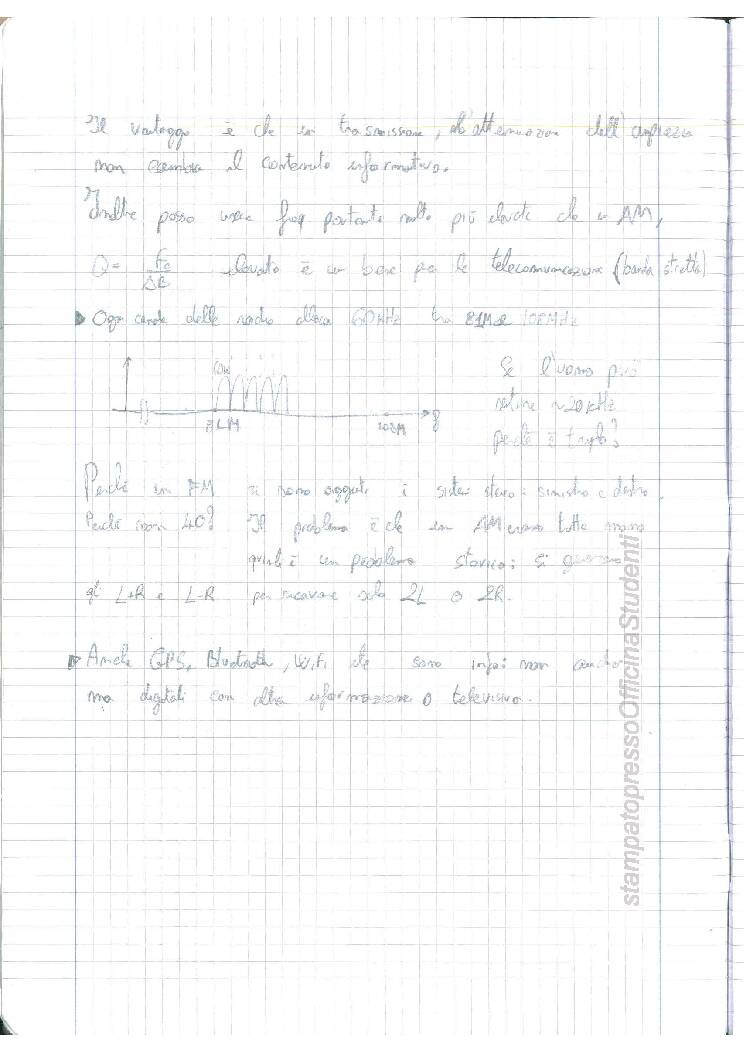 Il vantaggio è che in trasmissione, l'attenuazione dell'ampiezza
non cambia il contenuto informativo.
Inoltre posso usare freq portante molto più elevate che in AM,
Q = Fc / ΔB elevato è un bene per le telecomunicazione (banda stretta)
Ogni canale della radio alloca 60kHz tra 81M e 108MHz
60k
81M 108M f
Se l'uomo può
sentire ~20kHz
perché è triplo?
Perché in FM si sono aggiunti i sistemi stereo: sinistro e destro.
Perché non 40? Il problema è che in AM erano tutte mono
quindi è un problema storico: si
gli L+R e L-R per ricavare solo 2L o 2R.
Anche GPS, Bluetooth, WiFi che sono info non
ma digitali con altra informazione o televisivo.
stampatopressoOfficinaStudenti